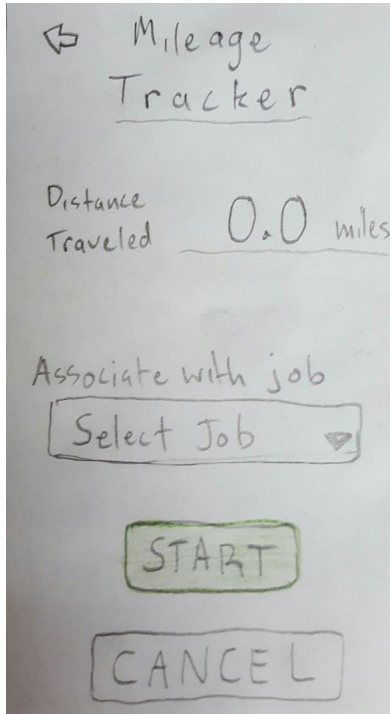 Mileage
Tracker
Distance
Traveled 0.0 miles
Associate with job
Select Job
START
CANCEL